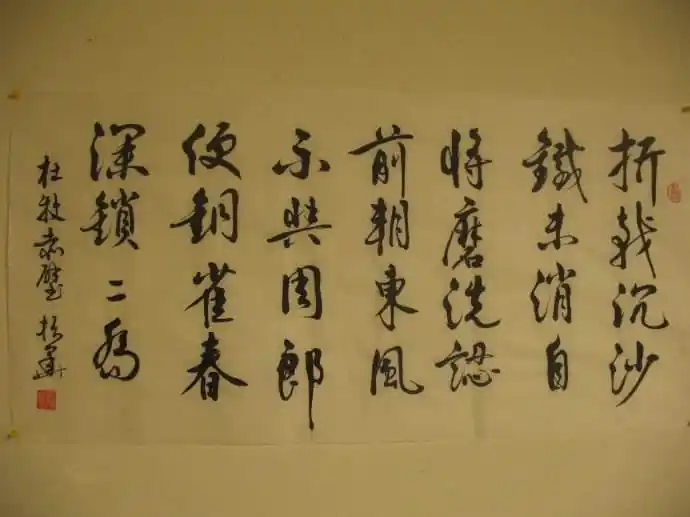 折戟沉沙
鐵未消自
將磨洗認
前朝東風
不與周郎
便銅雀春
深鎖二喬
杜牧赤壁